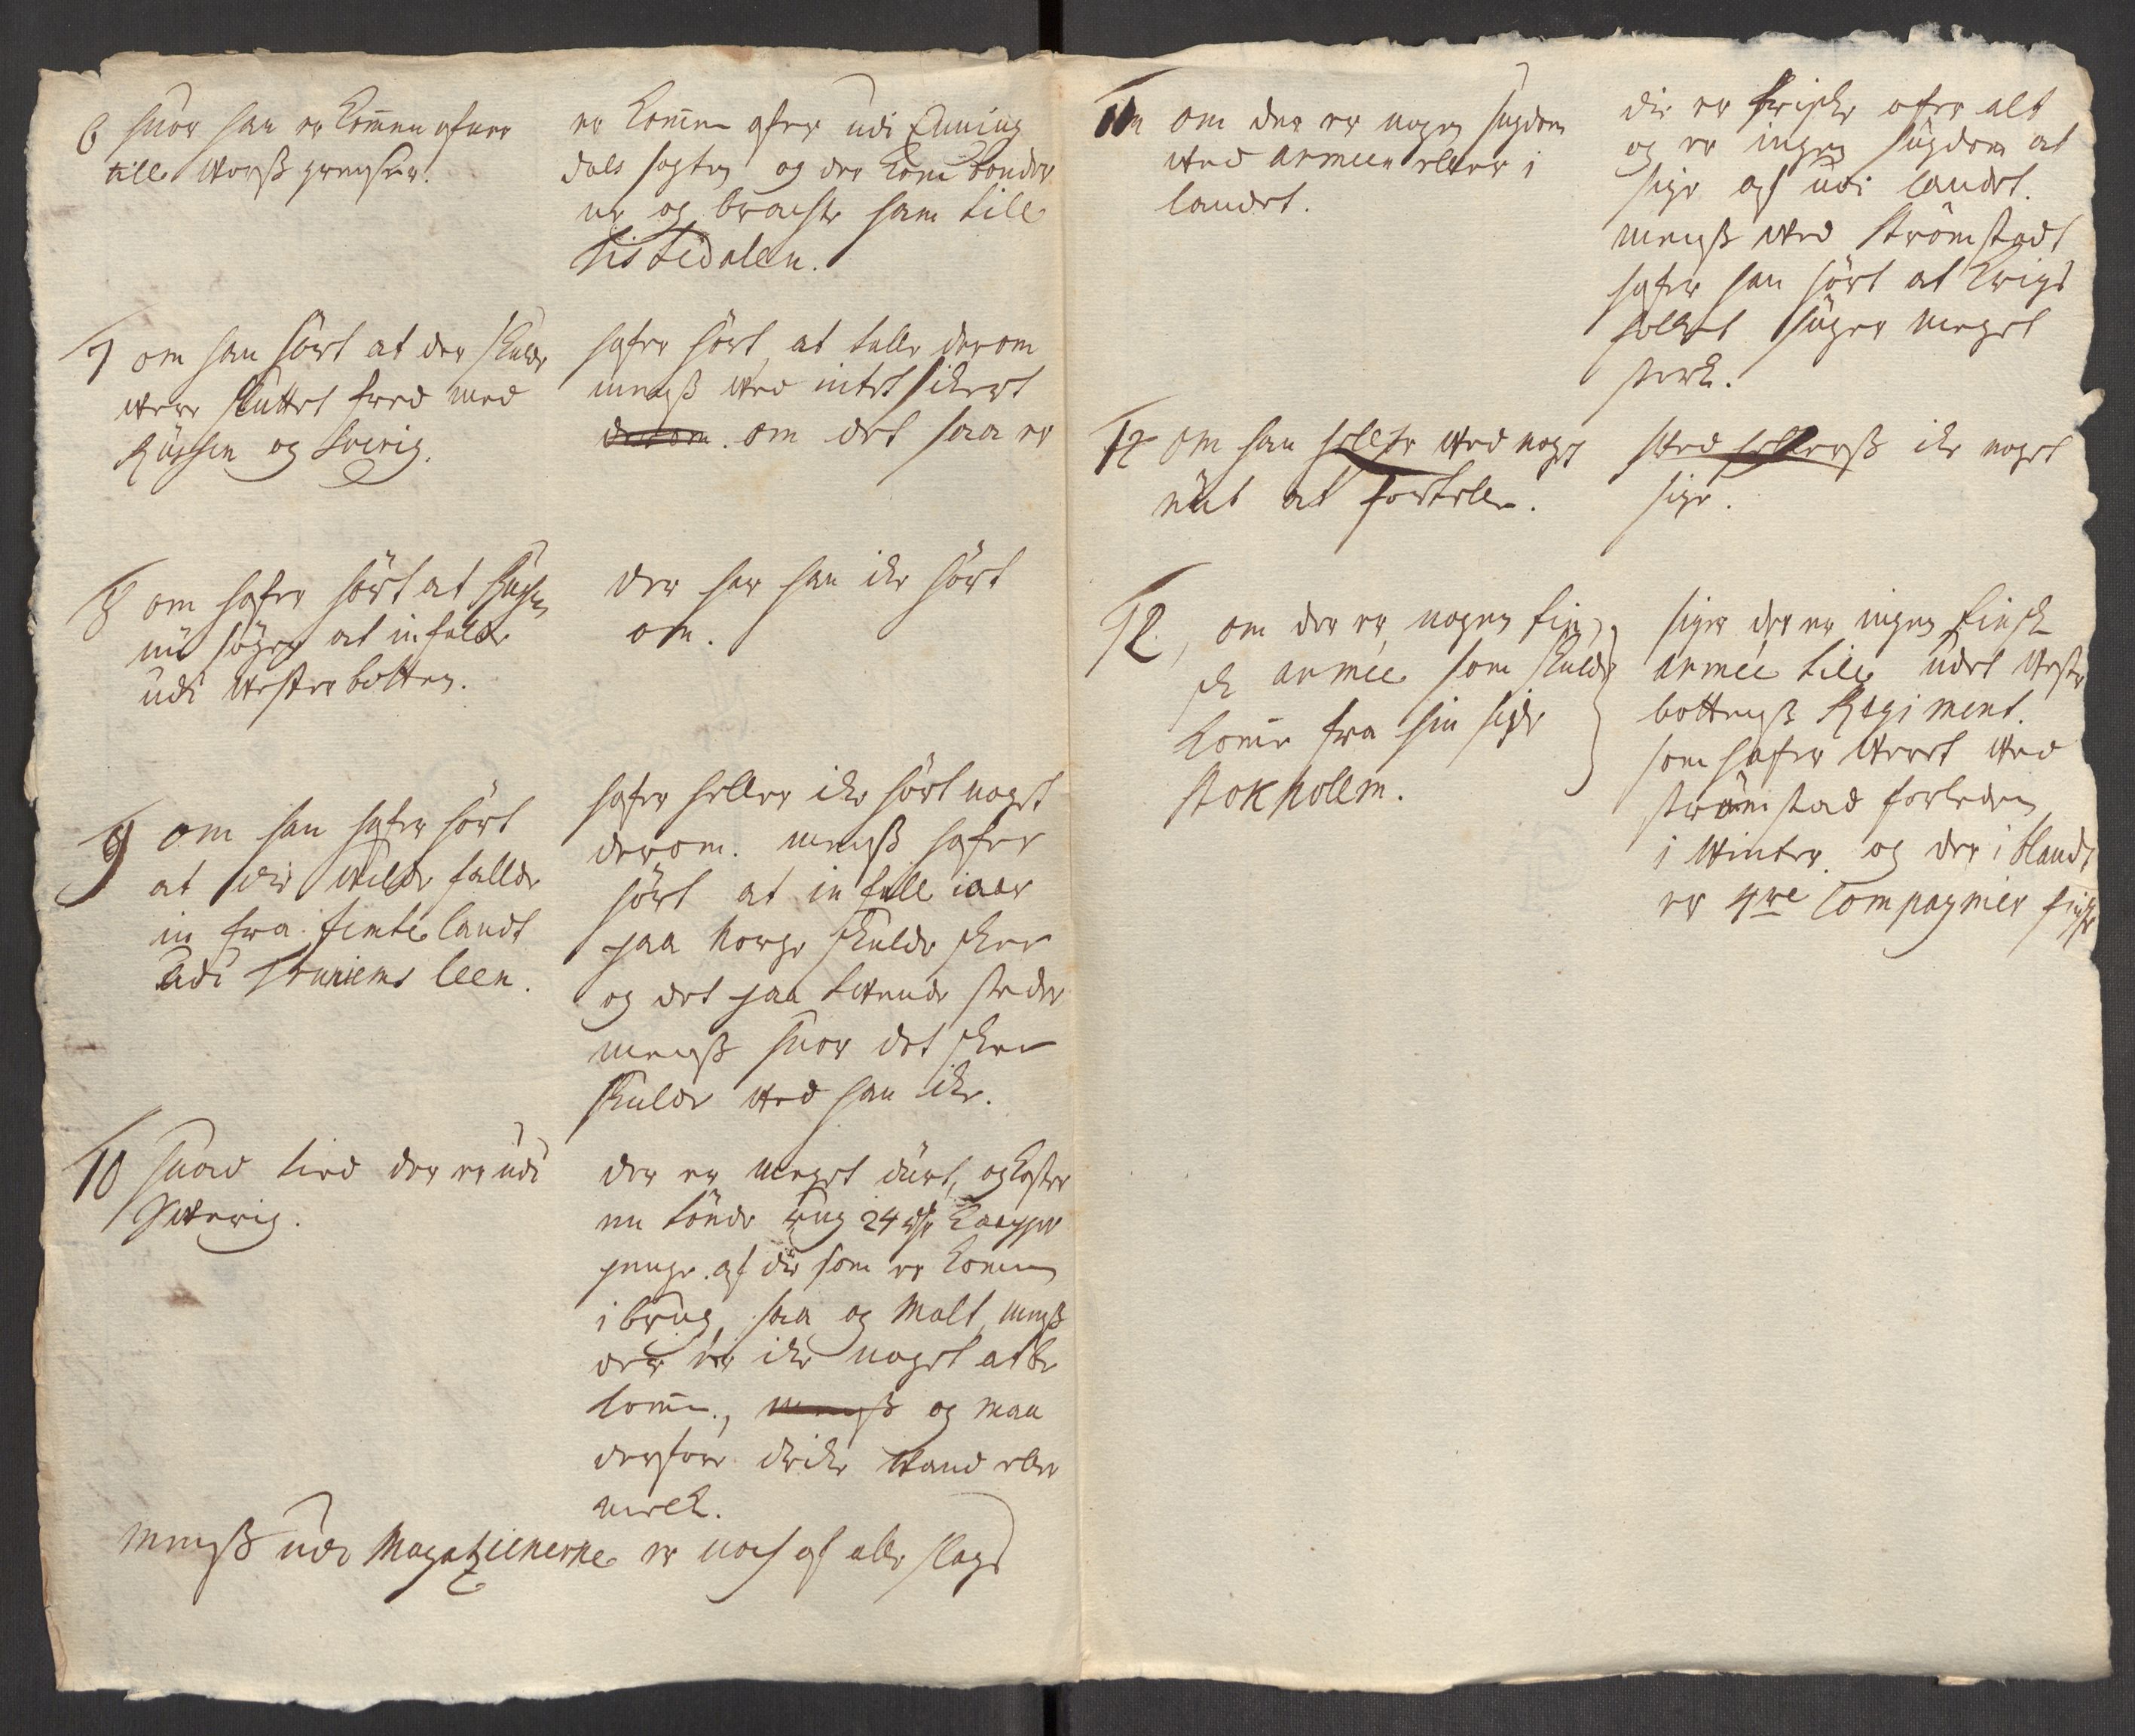 6 huor han er kommen ofuer
till worß grenser.
er kommen ofer udi Enning
dals sogten og der kom bonder
ne og bracte ham till
Tistedalen.
7 om han hört at der skulde
were sluttet fred med
Rüssen og Sverig.
hafer hört at talle derom
menß wed intet sikert
derom. om det saa er
8 om hafer hört at Russen
nü söger at infalde
udi westerbotten.
der har han icke hört
om.
9 om han hafer hört
at die wilde falde
in fra Jemteland
udi Truniems leen.
hafer heller icke hört noget
derom. menß hafer
hört at in fall iaar
paa Norge skulde skee
og det paa twende steder
menß huor det skee
skulde wed han icke.
10 huad tied der er udi
Swerig.
der er meget dürt, og koster
en tönde Rug 24 dr kaapper
penge. af die som er kommen
i brug, saa og Malt, menß
der er icke noget at be
komme, menß og maa
derfore dricke wand eller
melck.
menß udi Magatzienerne er nock af alle slags
11 om der er nogen sugdom
wed armeen eller i
landet.
die er friske ofer alt
og er ingen sugdom at
sige af udi landet.
menß wed Strömstadt
hafer han hört at krigs
folket suger meget
sterk.
12 om han hellste wed noget
nüt at fortelle.
wed hellerß icke noget
sige.
12, om der er nogen fin
sk armee som skulde
komme fra hin side
stokhollm.
siger der er ingen finsk
armee till udet wester
bottenß Regiment.
som hafer werret wed
strömstad forleden
i winter. og der i blandt
er 4re Compagnier finske